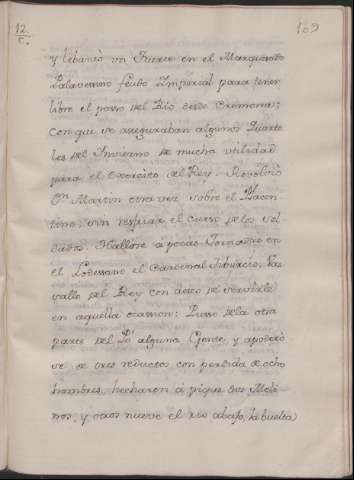 12. 109
C.
y lebantò un Fuerte en el Marquesato
Palavesino feudo Imperial para tener
libre el passo del Rio desde Cremona;
con que se aseguraban algunos Quarte
les del Imvierno de mucha utilidad
para el Exercito del Rey. Rebolviò
Dn. Martin otra vez sobre el Placen
tino: sin resfriar el curso de los sol
dados. Hallòse a pocas Jornadas en
el Lodessano el Cardenal Tiburcio, Va
sallo del Rey con deseo de servirle
en aquella ocassion: Passò de la otra
parte del Pò alguna Gente, y apoderò
se de tres reductos, con perdida de ocho
hombres, hecharon à pique dos Moli
nos, y otros nueve el rio abajo, la buelta